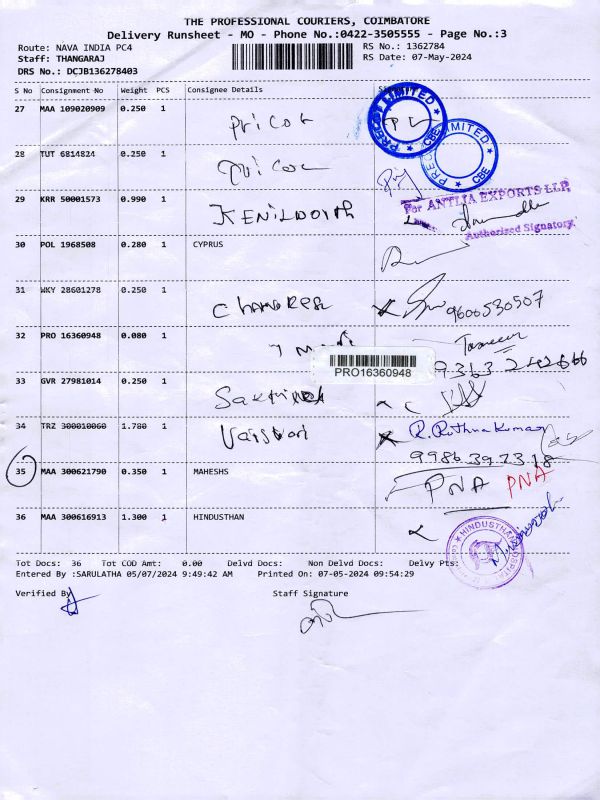 THE PROFESSIONAL COURIERS, COIMBATORE
Delivery Runsheet - MO - Phone No.:0422-3505555 - Page No.:3
Route: NAVA INDIA PC4 RS No.: 1362784
Staff: THANGARAJ RS Date: 07-May-2024
DRS No.: DCJB136278403
S No Consignment No Weight PCS Consignee Details
27 MAA 109020909 0.250 1 Pricol
PRECOT LIMITED CBE
28 TUT 6814824 0.250 1 Pricol
LIMITED CBE
29 KRR 50001573 0.990 1 KENILWORTH
For ANTLIA EXPORTS LLP
Authorized Signatory
30 POL 1968508 0.280 1 CYPRUS
31 WKY 28601278 0.250 1
9600530507
32 PRO 16360948 0.080 1
PRO16360948
33 GVR 27981014 0.250 1
34 TRZ 300010060 1.780 1 R. Rathna Kumar
35 MAA 300621790 0.350 1 MAHESHS PNA PNA
36 MAA 300616913 1.300 1 HINDUSTHAN
HINDUSTHAN HOSPITAL
Tot Docs: 36 Tot COD Amt: 0.00 Delvd Docs: Non Delvd Docs: Delvy Pts:
Entered By :SARULATHA 05/07/2024 9:49:42 AM Printed On: 07-05-2024 09:54:29
Verified By Staff Signature